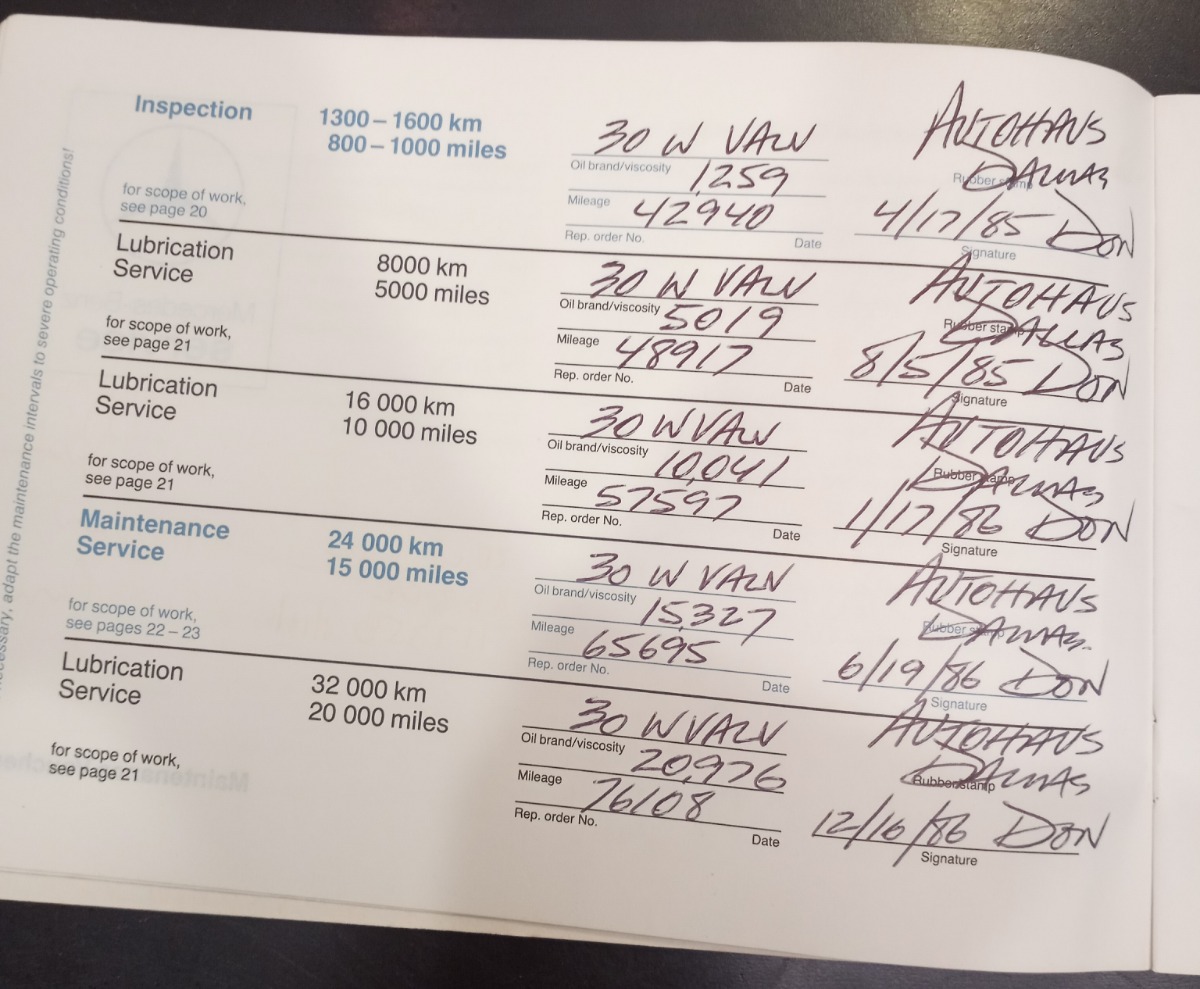 Inspection 1300 – 1600 km 30 W VALV AUTOHAUS
800 – 1000 miles Oil brand/viscosity DALLAS
for scope of work, 1,259 Rubber stamp
see page 20 Mileage
42940 4/17/85 DON
Rep. order No. Date Signature
Lubrication 8000 km 30 W VALV AUTOHAUS
Service 5000 miles Oil brand/viscosity DALLAS
for scope of work, 5019 Rubber stamp
see page 21 Mileage
48917 8/5/85 DON
Rep. order No. Date Signature
Lubrication 16 000 km 30 W VALV AUTOHAUS
Service 10 000 miles Oil brand/viscosity DALLAS
for scope of work, 10,041 Rubber stamp
see page 21 Mileage
57597 1/17/86 DON
Rep. order No. Date Signature
Maintenance 24 000 km 30 W VALV AUTOHAUS
Service 15 000 miles Oil brand/viscosity DALLAS
for scope of work, 15,327 Rubber stamp
see pages 22 – 23 Mileage
65695 6/19/86 DON
Rep. order No. Date Signature
Lubrication 32 000 km 30 W VALV AUTOHAUS
Service 20 000 miles Oil brand/viscosity DALLAS
for scope of work, 20,976 Rubber stamp
see page 21 Mileage
76108 12/16/86 DON
Rep. order No. Date Signature
necessary, adapt the maintenance intervals to severe operating conditions!